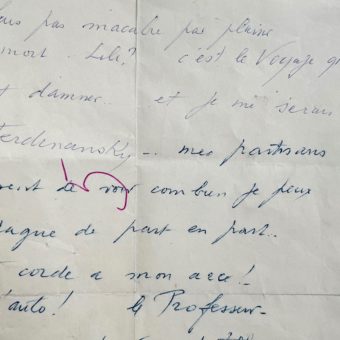 pas macabre par pleine
mort Lili? c'est le Voyage q
damner.. et je me serais
Ferdinansky _.. mes partisans
de voir combien je peux
lague de part en part..
corde a mon arc!
'auto! le Professeur-